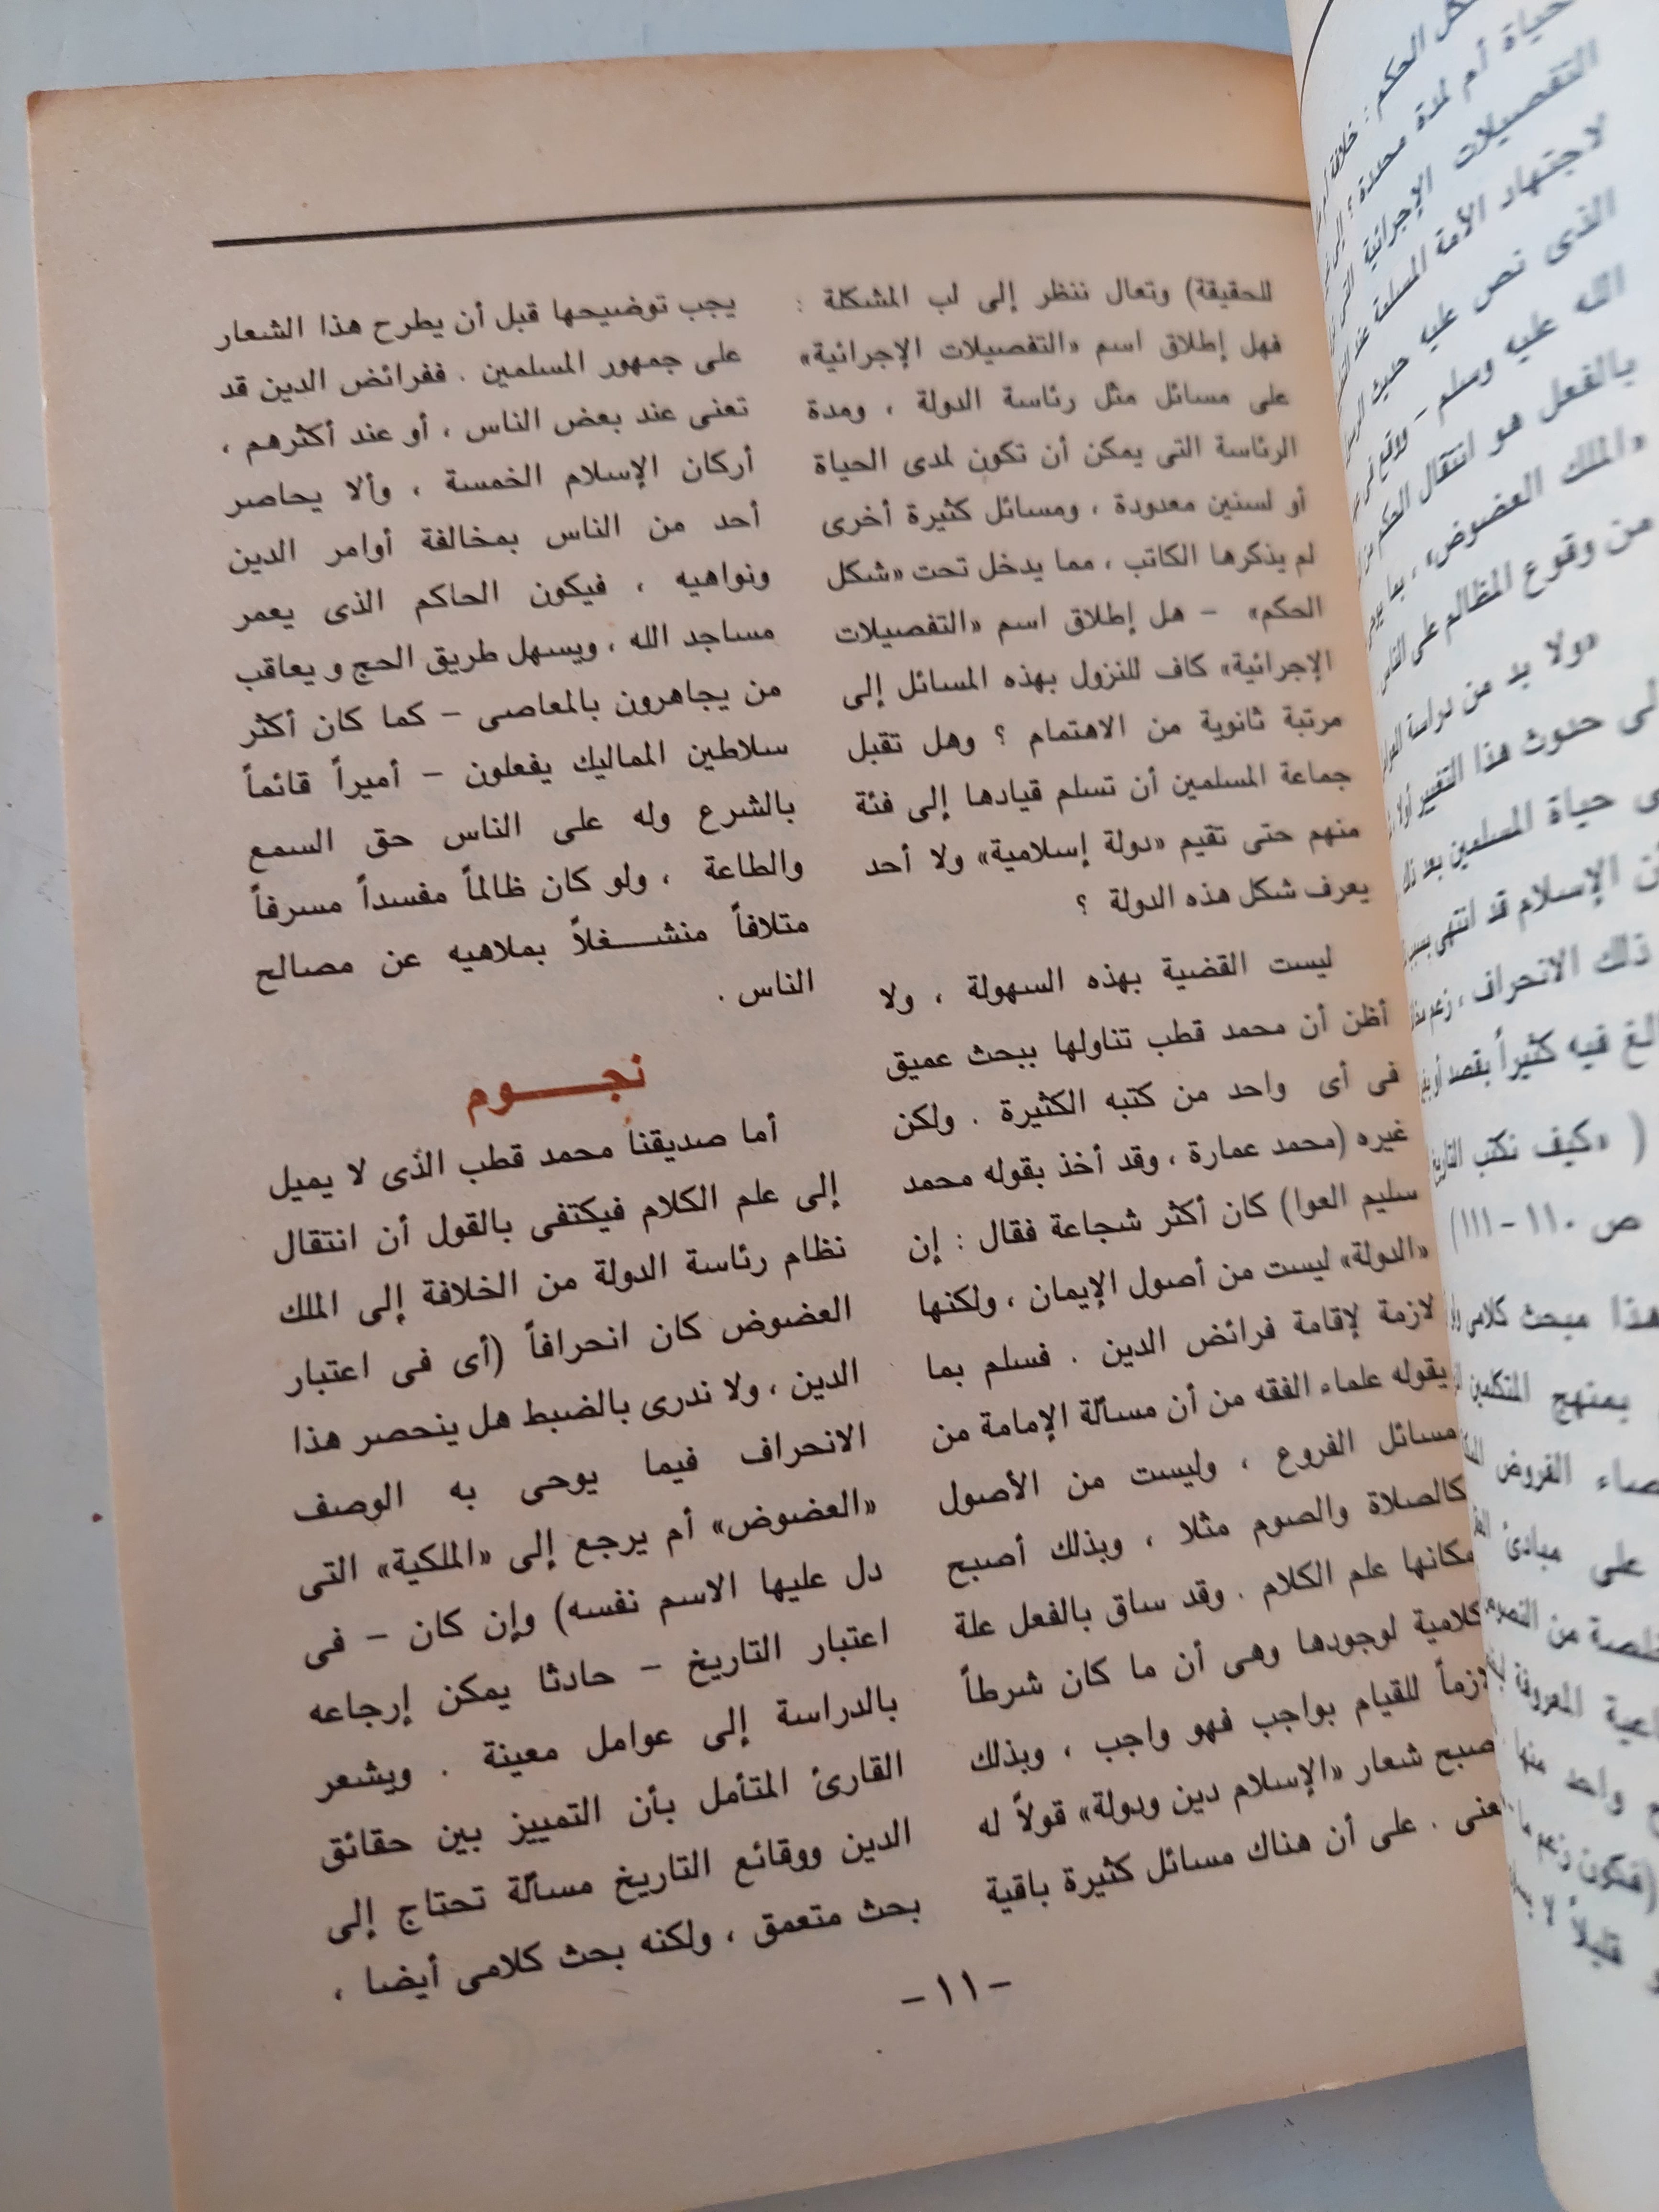 للحقيقة) وتعال ننظر إلى لب المشكلة :
فهل إطلاق اسم «التفصيلات الإجرائية»
على مسائل مثل رئاسة الدولة ، ومدة
الرئاسة التى يمكن أن تكون لمدى الحياة
أو لسنين معدودة ، ومسائل كثيرة أخرى
لم يذكرها الكاتب ، مما يدخل تحت «شكل
الحكم» – هل إطلاق اسم «التفصيلات
الإجرائية» كاف للنزول بهذه المسائل إلى
مرتبة ثانوية من الاهتمام ؟ وهل تقبل
جماعة المسلمين أن تسلم قيادها إلى فئة
منهم حتى تقيم «دولة إسلامية» ولا أحد
يعرف شكل هذه الدولة ؟
ليست القضية بهذه السهولة ، ولا
أظن أن محمد قطب تناولها ببحث عميق
فى أى واحد من كتبه الكثيرة . ولكن
غيره (محمد عمارة ، وقد أخذ بقوله محمد
سليم العوا) كان أكثر شجاعة فقال : إن
«الدولة» ليست من أصول الإيمان ، ولكنها
لازمة لإقامة فرائض الدين . فسلم بما
يقوله علماء الفقه من أن مسألة الإمامة من
مسائل الفروع ، وليست من الأصول
كالصلاة والصوم مثلا ، وبذلك أصبح
مكانها علم الكلام . وقد ساق بالفعل علة
كلامية لوجودها وهى أن ما كان شرطاً
لازماً للقيام بواجب فهو واجب ، وبذلك
صبح شعار «الإسلام دين ودولة» قولاً له
معنى . على أن هناك مسائل كثيرة باقية
يجب توضيحها قبل أن يطرح هذا الشعار
على جمهور المسلمين . ففرائض الدين قد
تعنى عند بعض الناس ، أو عند أكثرهم ،
أركان الإسلام الخمسة ، وألا يحاصر
أحد من الناس بمخالفة أوامر الدين
ونواهيه ، فيكون الحاكم الذى يعمر
مساجد الله ، ويسهل طريق الحج ويعاقب
من يجاهرون بالمعاصى – كما كان أكثر
سلاطين المماليك يفعلون – أميراً قائماً
بالشرع وله على الناس حق السمع
والطاعة ، ولو كان ظالماً مفسداً مسرفاً
متلافاً منشغلاً بملاهيه عن مصالح
الناس .
نجوم
أما صديقنا محمد قطب الذى لا يميل
إلى علم الكلام فيكتفى بالقول أن انتقال
نظام رئاسة الدولة من الخلافة إلى الملك
العضوض كان انحرافاً (أى فى اعتبار
الدين ، ولا ندرى بالضبط هل ينحصر هذا
الانحراف فيما يوحى به الوصف
«العضوض» أم يرجع إلى «الملكية» التى
دل عليها الاسم نفسه) وإن كان – فى
اعتبار التاريخ – حادثا يمكن إرجاعه
بالدراسة إلى عوامل معينة . ويشعر
القارئ المتأمل بأن التمييز بين حقائق
الدين ووقائع التاريخ مسألة تحتاج إلى
بحث متعمق ، ولكنه بحث كلامى أيضا ،
– ١١ –
الحكم : خلافة
حياة أم لمدة محددة ؛
التفصيلات الإجرائية التى
لاجتهاد الأمة المسلمة عند
الذى نص عليه حديث
الله عليه وسلم – وقع فى
بالفعل هو انتقال الحكم من
«الملك العضوض» ، بما
من وقوع المظالم على الناس
«ولا بد من دراسة
حدوث هذا التغيير أولا ،
حياة المسلمين بعد ذلك
الإسلام قد انتهى بسبب
ذلك الانحراف ، زعم
فيه كثيراً بقصد أو
( «كيف نكتب التاريخ
ص ١١٠ – ١١١)
هذا مبحث كلامى
بمنهج المتكلمين
الفروض
على مبادئ
من النصوص
المعروفة
واحد منها
(فتكون زعم
قليلاً لا